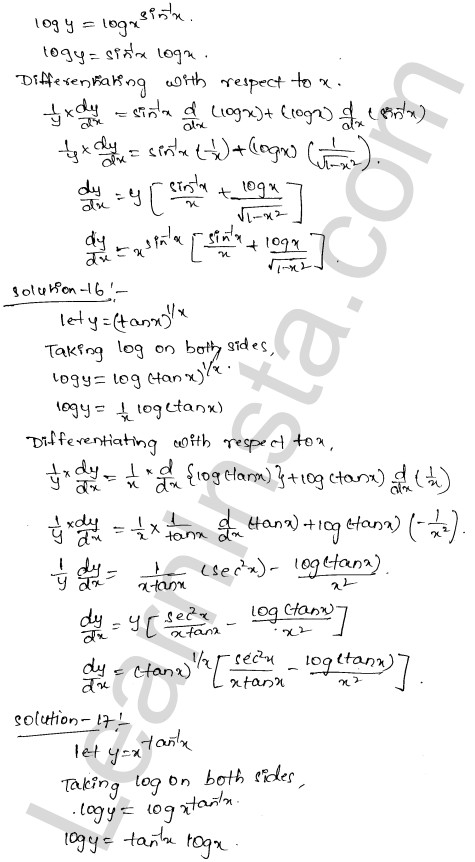 log y = log x^sin⁻¹x
log y = sin⁻¹x log x.
Differentiating with respect to x.
1/y × dy/dx = sin⁻¹x d/dx (log x) + (log x) d/dx (sin⁻¹x)
1/y × dy/dx = sin⁻¹x (1/x) + (log x) (1/√(1-x²)).
dy/dx = y [sin⁻¹x/x + log x/√(1-x²)]
dy/dx = x^sin⁻¹x [sin⁻¹x/x + log x/√(1-x²)].
Solution-16:-
let y = (tan x)^1/x
Taking log on both sides,
log y = log (tan x)^1/x.
log y = 1/x log (tan x)
Differentiating with respect to x,
1/y × dy/dx = 1/x × d/dx {log (tan x)} + log (tan x) d/dx (1/x)
1/y × dy/dx = 1/x × 1/tan x d/dx (tan x) + log (tan x) (-1/x²).
1/y dy/dx = 1/x tan x (sec²x) - log (tan x)/x².
dy/dx = y [sec²x/x tan x - log (tan x)/x²]
dy/dx = (tan x)^1/x [sec²x/x tan x - log (tan x)/x²].
Solution-17:-
let y = x^tan⁻¹x
Taking log on both sides,
log y = log x^tan⁻¹x.
log y = tan⁻¹x log x.
LearnInsta.com